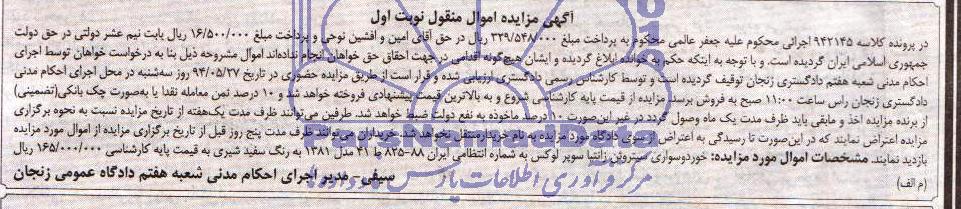 آگهی مزایده اموال منقول نوبت اول
در پرونده کلاسه ۹۴۲۱۴۵ اجرائی محکوم علیه جعفر عالمی محکوم به پرداخت مبلغ ۳۲۹/۵۴۸/۰۰۰ ریال در حق آقای امین و افشین نوحی و پرداخت مبلغ ۱۶/۵۰۰/۰۰۰ ریال بابت نیم عشر دولتی در حق دولت
جمهوری اسلامی ایران گردیده است. و با توجه به اینکه حکم به خوانده ابلاغ گردیده و ایشان هیچ‌گونه اقدامی در جهت احقاق حق خواهان انجام نداده‌اند اموال مشروحه ذیل بنا به درخواست خواهان توسط اجرای
احکام مدنی شعبه هفتم دادگستری زنجان توقیف گردیده است و توسط کارشناس رسمی دادگستری ارزیابی شده و قرار است از طریق مزایده حضوری در تاریخ ۹۴/۰۵/۲۷ روز سه‌شنبه در محل اجرای احکام مدنی
دادگستری زنجان راس ساعت ۱۱:۰۰ صبح به فروش برسد. مزایده از قیمت پایه کارشناسی شروع و به بالاترین قیمت پیشنهادی فروخته خواهد شد و ۱۰ درصد ثمن معامله نقدا یا به‌صورت چک بانکی(تضمینی)
از برنده مزایده اخذ و مابقی باید ظرف مدت یک ماه وصول گردد در غیر این‌صورت ۱۰ درصد ماخوذه به نفع دولت ضبط خواهد شد. طرفین می‌توانند ظرف مدت یک‌هفته از تاریخ مزایده نسبت به نحوه برگزاری
مزایده اعتراض نمایند که در این‌صورت تا رسیدگی به اعتراض از سوی دادگاه مورد مزایده به نام خریدار منتقل نخواهد شد. خریداران می‌توانند ظرف مدت پنج روز قبل از تاریخ برگزاری مزایده از اموال مورد مزایده
بازدید نمایند. مشخصات اموال مورد مزایده: خودروسواری سیتروین زانتیا سوپر لوکس به شماره انتظامی ایران ۸۸-۸۲۵ ط ۳۱ مدل ۱۳۸۱ به رنگ سفید شیری به قیمت پایه کارشناسی ۱۶۵/۰۰۰/۰۰۰ ریال
(م الف) سیفی- مدیر اجرای احکام مدنی شعبه هفتم دادگاه عمومی زنجان
مرکز فرآوری اطلاعات پارس